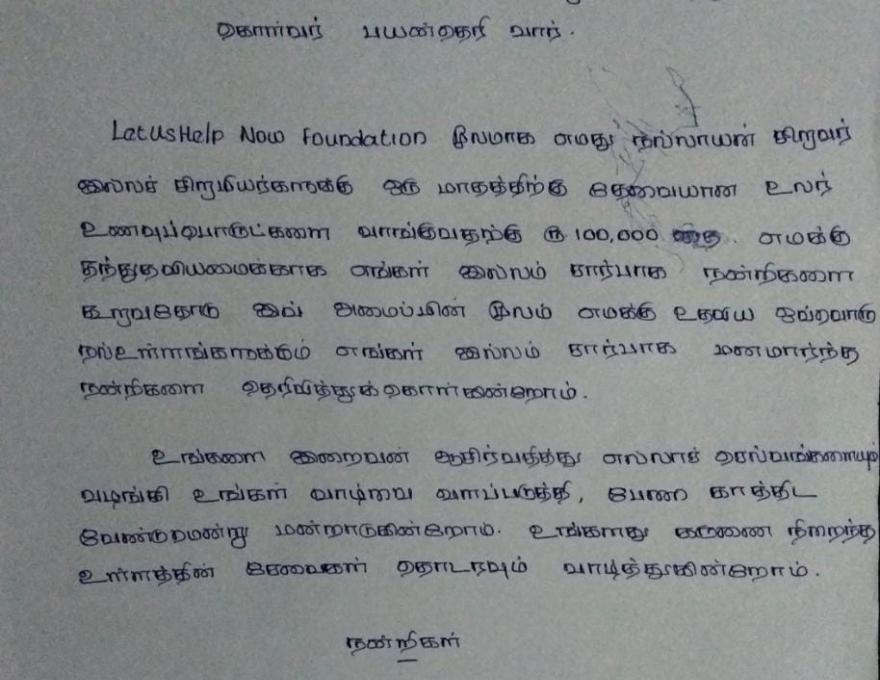 கொள்வர் பயன்தெரி வார்.
LetUsHelp Now Foundation மூலமாக எமது நல்லாயன் சிறுவர்
இல்லச் சிறுமியர்களுக்கு ஒரு மாதத்திற்கு தேவையான உலர்
உணவுப்பொருட்களை வாங்குவதற்கு ரூ 100,000 எமக்கு
தந்துதவியமைக்காக எங்கள் இல்லம் சார்பாக நன்றிகளை
கூறுவதோடு இவ் அமைப்பின் மூலம் எமக்கு உதவிய ஒவ்வொரு
நல்உள்ளங்களுக்கும் எங்கள் இல்லம் சார்பாக மனமார்ந்த
நன்றிகளை தெரிவித்துக்கொள்கின்றோம்.
உங்களை இறைவன் ஆசிர்வதித்து எல்லாச் செல்வங்களையும்
வழங்கி உங்கள் வாழ்வை வளப்படுத்தி, பேணி காத்திட
வேண்டுமென்று மன்றாடுகின்றோம். உங்களது கருணை நிறைந்த
உள்ளத்தின் சேவைகள் தொடரவும் வாழ்த்துகின்றோம்.
நன்றிகள்